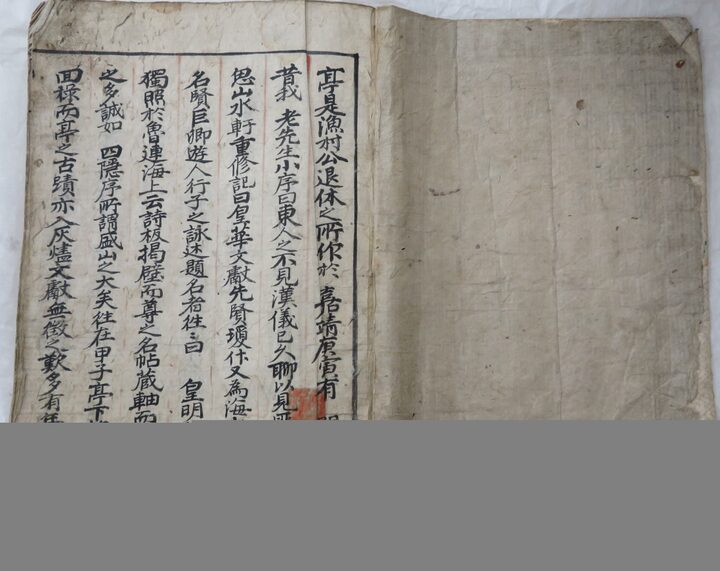 亭是漁村公退休之所作於 嘉靖庚寅有
昔我 老先生小序曰東人之不見漢儀已久聊以見
思山水軒重修記曰皇華文獻先賢瓊什又為海
名賢巨卿遊人行子之詠述題名者往〻曰 皇明
獨照於魯連海上云詩板揭壁而尊之名帖蔵軸而
之多誠如 四隠序所謂盛山之大矣往在甲子亭下
回祿而亭之古蹟亦入灰燼文獻無徴之歎多有